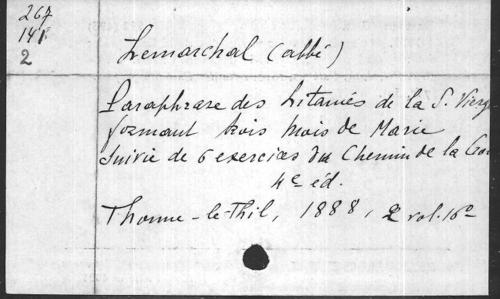 267
141
2
Lemarchal (abbé)
Paraphrase des Litanies de la S. Vierg
formant trois mois de Marie
suivie de 6 exercices du Chemin de la Croi
4e éd.
Thonne-le-Thil, 1888, 2 vol. 16º